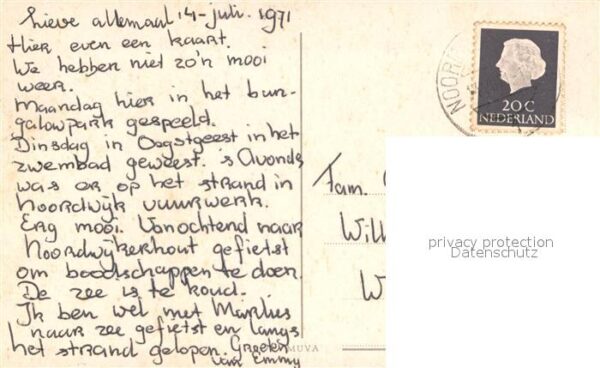 Lieve allemaal 14-juli. 1971
Hier even een kaart.
We hebben niet zo'n mooi
weer.
Maandag hier in het bun-
galowpark gespeeld.
Dinsdag in Oogstgeest in het
zwembad geweest. 's Avonds
was er op het strand in
Noordwijk vuurwerk.
Erg mooi. Vanochtend naar
Noordwijkerhout gefietst
om boodschappen te doen.
De zee is te koud.
Ik ben wel met Marlies
naar zee gefietst en langs
het strand gelopen. Groeten
van Emmy
MUVA
NOOR
20 C
NEDERLAND
Fam.
Will
W
privacy protection
Datenschutz